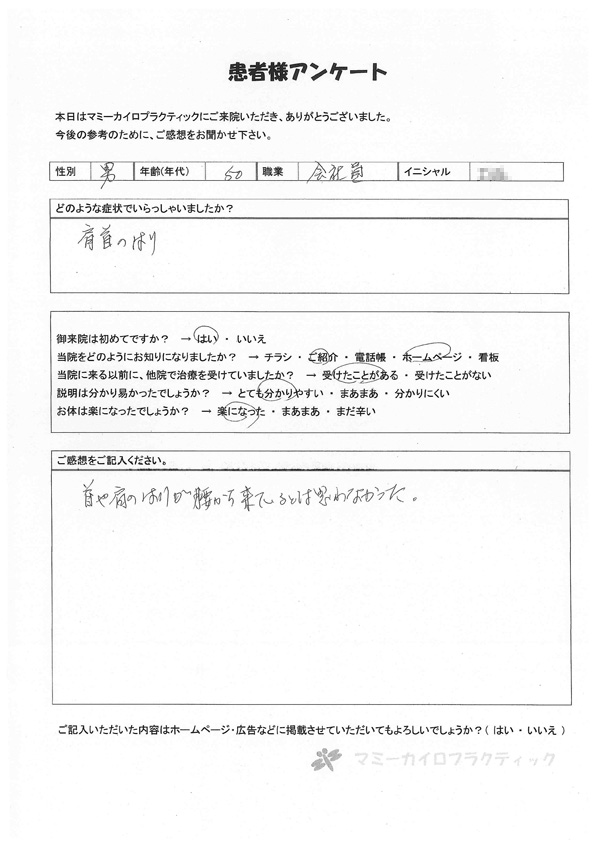 患者様アンケート
本日はマミーカイロプラクティックにご来院いただき、ありがとうございました。
今後の参考のために、ご感想をお聞かせ下さい。
性別 男 年齢(年代) 50 職業 会社員 イニシャル
どのような症状でいらっしゃいましたか？
肩首のはり
御来院は初めてですか？ → はい ・ いいえ
当院をどのようにお知りになりましたか？ → チラシ ・ ご紹介 ・ 電話帳 ・ ホームページ ・ 看板
当院に来る以前に、他院で治療を受けていましたか？ → 受けたことがある ・ 受けたことがない
説明は分かり易かったでしょうか？ → とても分かりやすい ・ まあまあ ・ 分かりにくい
お体は楽になったでしょうか？ → 楽になった ・ まあまあ ・ まだ辛い
ご感想をご記入ください。
首や肩のはりが腰から来ているとは思わなかった。
ご記入いただいた内容はホームページ・広告などに掲載させていただいてもよろしいでしょうか？（ はい ・ いいえ ）
マミーカイロプラクティック